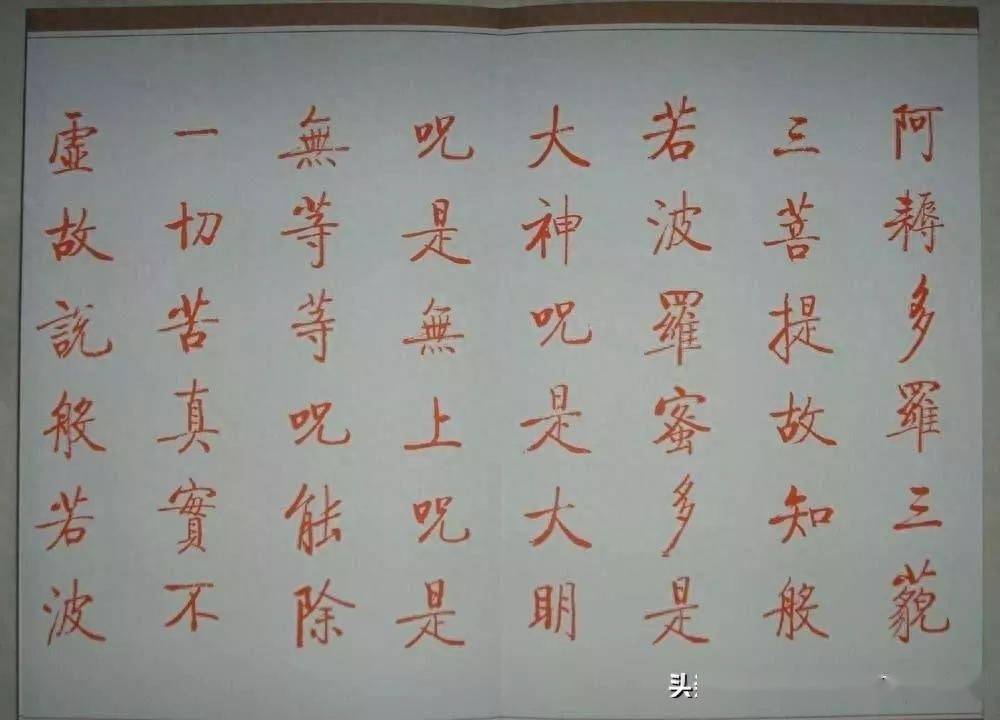 阿耨多羅三藐
三菩提故知般
若波羅蜜多是
大神呪是大明
呪是無上呪是
無等等呪能除
一切苦真實不
虛故說般若波
头